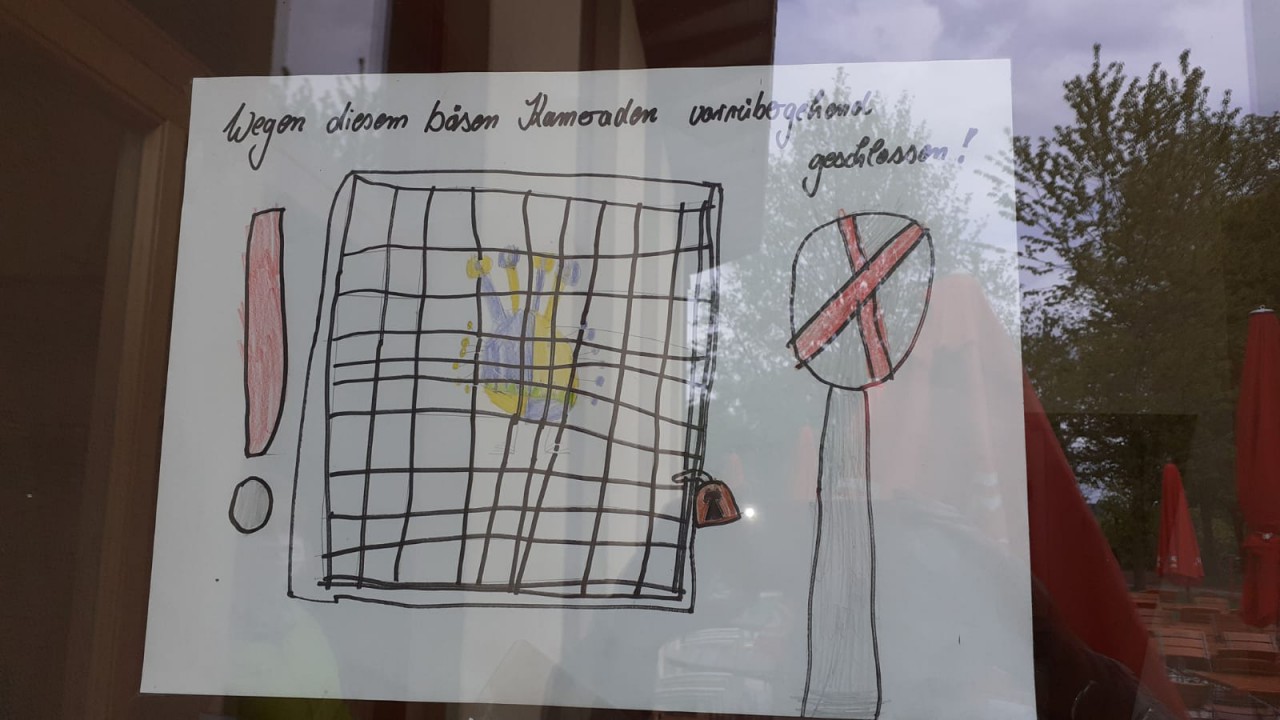 Wegen diesem bösen Kameraden vorrübergehend
geschlossen!